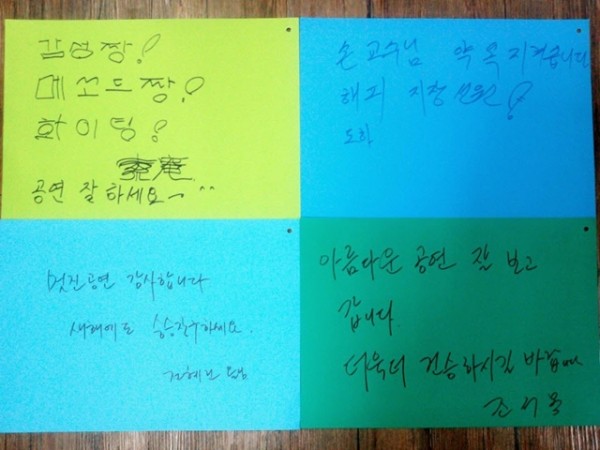 감성짱!
메쏘드짱!
화이팅!
공연 잘 하세요~^^
손 교수님 약속 지켜습니다
해피 지장
도하
멋진공연 감사합니다
새해에도 승승장구하세요.
아름다운 공연 잘 보고
갑니다.
더욱더 건승하시길 바랍니다